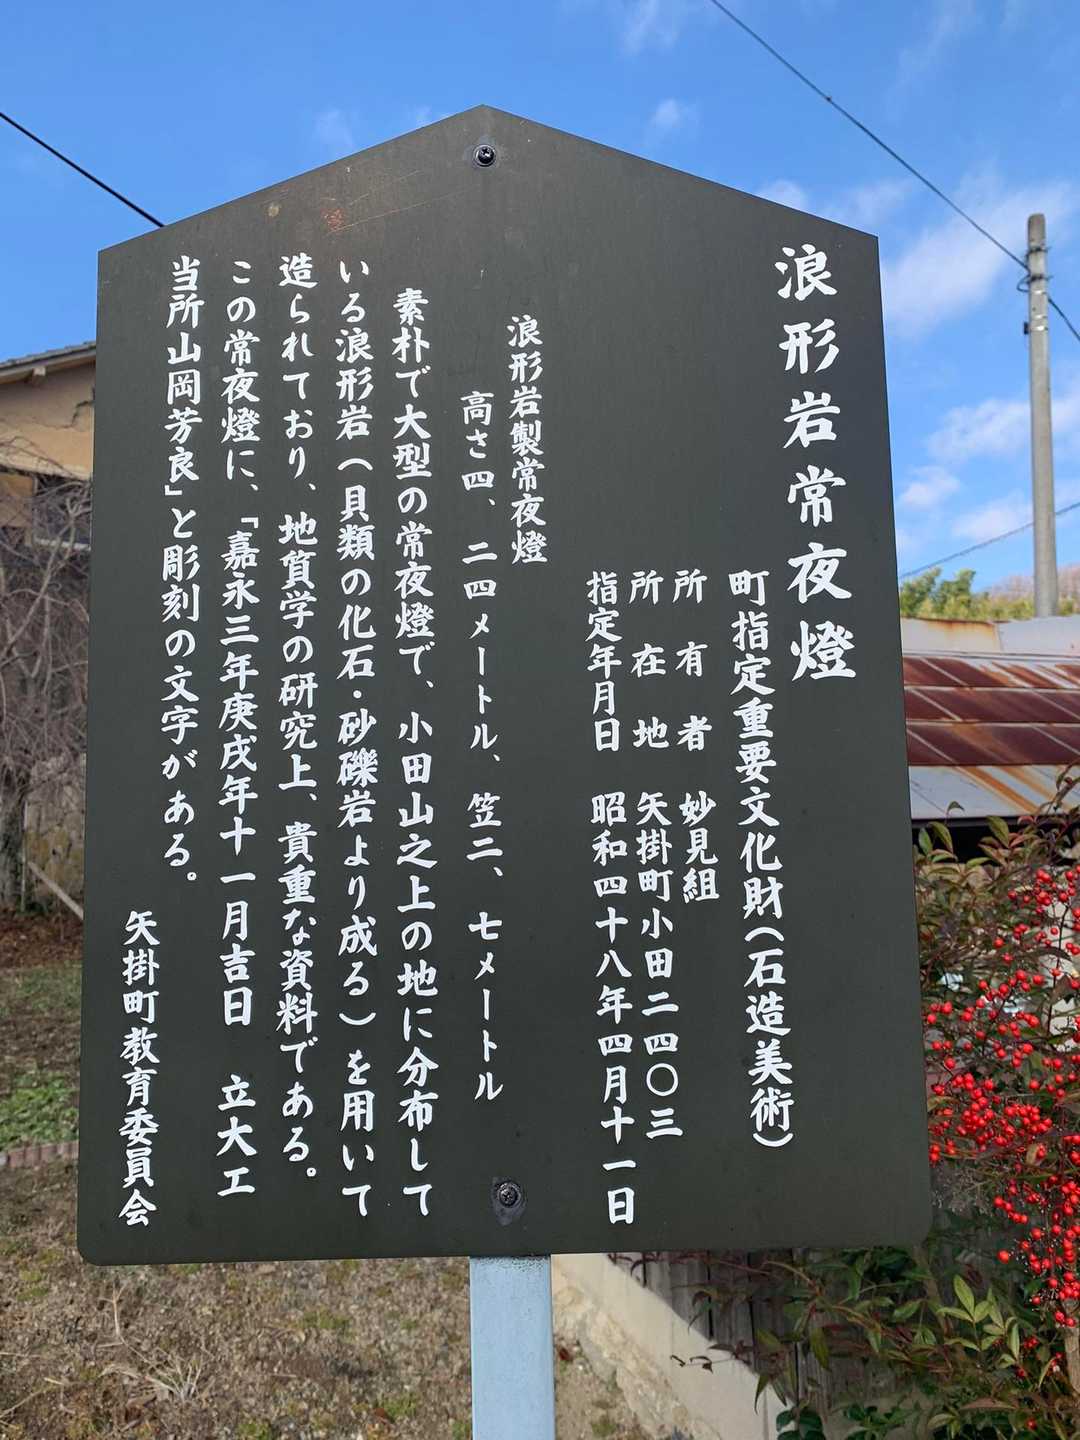 浪形岩常夜燈
町指定重要文化財(石造美術)
所有者 妙見組
所在地 矢掛町小田二四〇三
指定年月日 昭和四十八年四月十一日
浪形岩製常夜燈
高さ四、二四メートル、笠二、七メートル
素朴で大型の常夜燈で、小田山之上の地に分布して
いる浪形岩(貝類の化石・砂礫岩より成る)を用いて
造られており、地質学の研究上、貴重な資料である。
この常夜燈に、「嘉永三年庚戌年十一月吉日 立大工
当所山岡芳良」と彫刻の文字がある。
矢掛町教育委員会